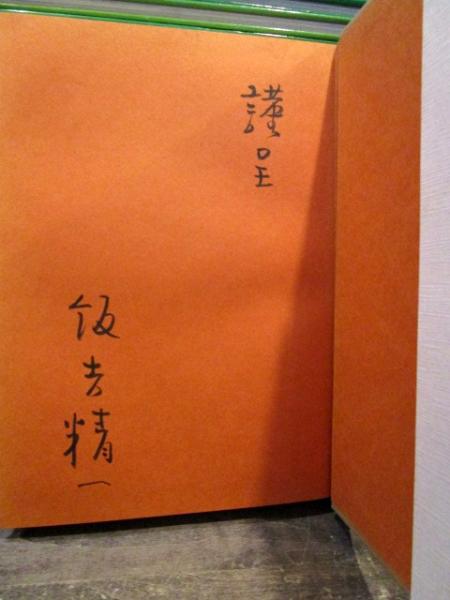 謹呈
飯吉精一